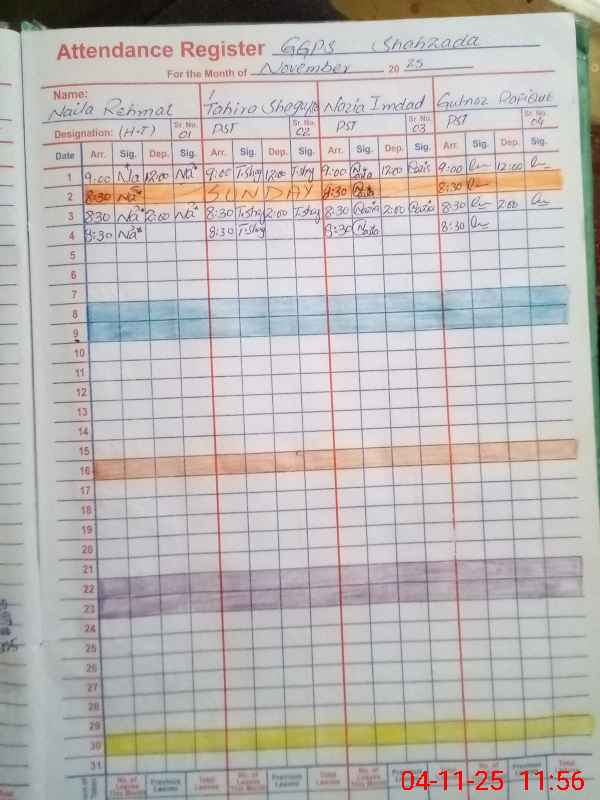 Attendance Register GGPS Shahzada
For the Month of November 20 25
Name: Naila Rehmat Tahira Shagufta Nazia Imdad Gulnaz
Designation: (H-T) Sr. No. 01 PST Sr. No. 02 PST Sr. No. 03 PST Sr. No. 04
Date Arr. Sig. Dep. Sig. Arr. Sig. Dep. Sig. Arr. Sig. Dep. Sig. Arr. Sig. Dep. Sig.
1 9:00 Na 12:00 Na 9:00 T.Shg 12:00 T.Shg 9:00 12:00 9:00 12:00
2 8:30 Na SUNDAY 8:30 8:30
3 8:30 Na 2:00 Na 8:30 T.Shg 2:00 T.Shg 8:30 2:00 8:30 2:00
4 8:30 Na 8:30 T.Shg 8:30 8:30
5
6
7
8
9
10
11
12
13
14
15
16
17
18
19
20
21
22
23
24
25
26
27
28
29
30
31
No. of Leaves This Month Previous Leaves Total Leaves No. of Leaves This Month Previous Leaves Total Leaves No. of Leaves This Month Previous Leaves Total Leaves No. of Previous Total
04-11-25 11:56